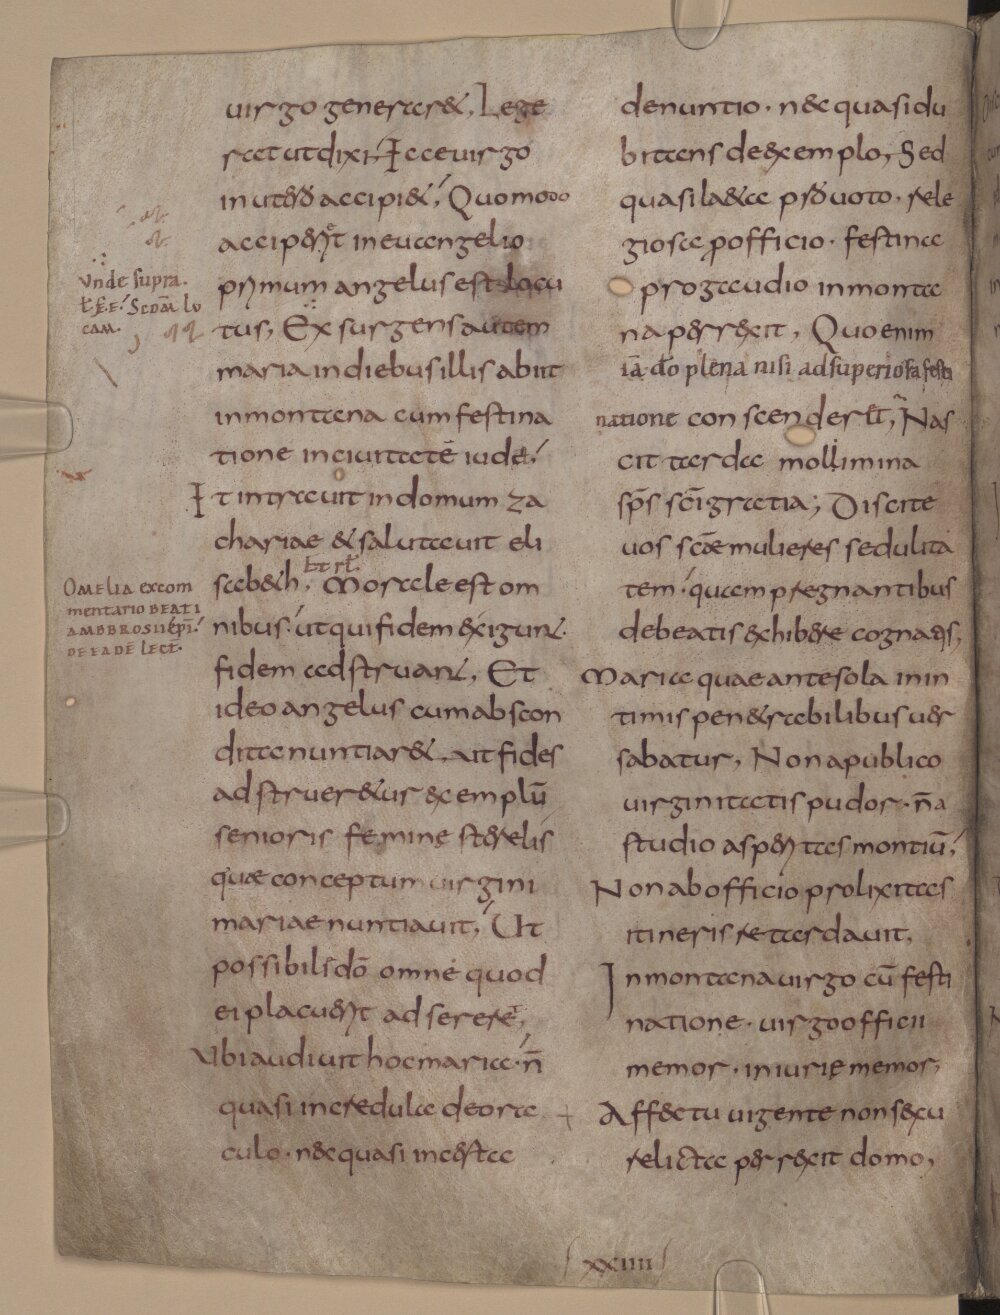 uirgo generaret, Lege
rat ut dixi, Ecce uirgo
in utero accipiet, Quomodo
acciperet in euangelio
primum angelus est locu
tus, Exsurgens autem
maria in diebus illis abiit
in montana cum festina
tione in ciuitatē iudę,
Et intrauit in domum za
chariae & salutauit eli
sabeth, Morale est om
nibus, ut qui fidem exigunt
fidem adstruant, Et
ideo angelus cum abscon
dita nuntiaret, ut fides
ad strueretur exemplū
senioris feminę sterelis
quae conceptum uirgini
mariae nuntiauit, Ut
possibile dō omne quod
ei placuerit ad serere,
Ubi audiuit hoc maria, n̄
quasi incredula de ora
culo, nec quasi incerta
Unde supra.
Scdm lu
cam.
Et rł.
OMELIA ex com
mentario BEATI
AMBROSII epī.
DE EADĒ LECT.
denuntio, nec quasi du
bitans de exemplo, Sed
quasi laeta pro uoto, rele
giosa pro officio, festina
pro gaudio in monta
na perrexit, Quo enim
iā dō plena nisi ad superiora festi
natione conscenderet, Nas
cit tarda mollimina
sp̄s sc̄i gratia, Discite
uos scāe mulieres sedulita
tem, quam pregnantibus
debeatis exhibere cognatis,
Maria quae ante sola in in
timis penetrabilibus uer
sabatur, Non a publico
uirginitatis pudor, n̄ a
studio asperitas montiū,
Non ab officio prolixitas
itineris retardauit,
In montana uirgo cū festi
natione, uirgo officii
memor, iniurię memor,
Affectu uigente non sexu
relicta perrexit domo,
xxiiii